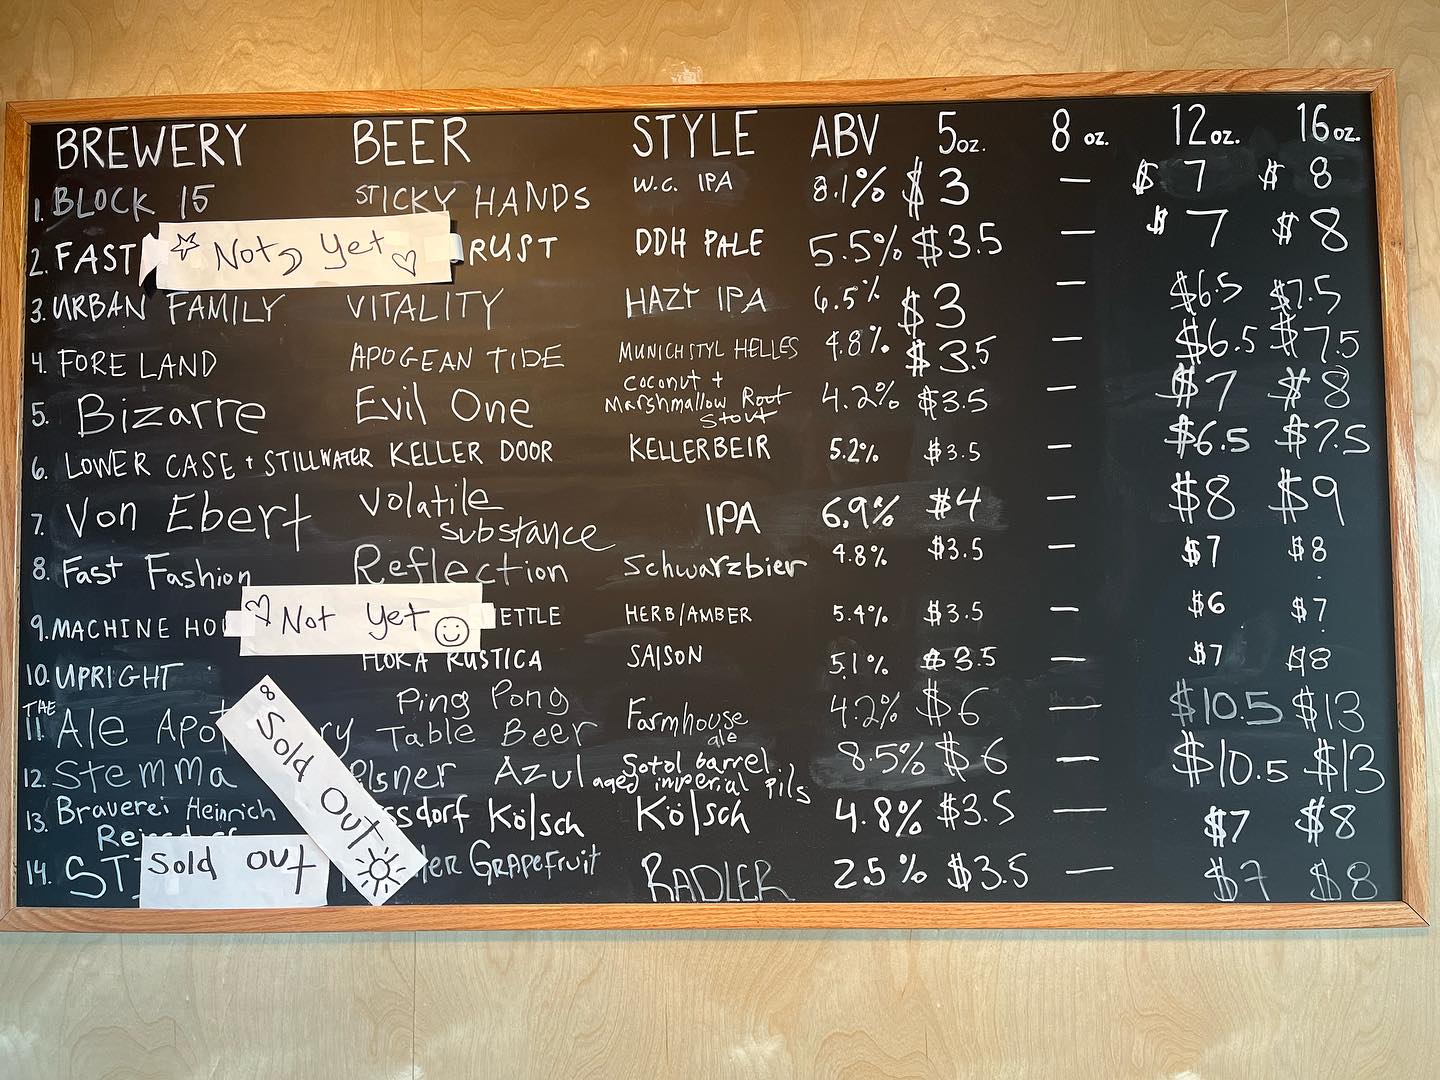 BREWERY BEER STYLE ABV 5oz. 8 oz. 12oz. 16oz.
1. BLOCK 15 STICKY HANDS W.C. IPA 8.1% $3 — $7 $8
2. FAST Not Yet RUST DDH PALE 5.5% $3.5 — $7 $8
3. URBAN FAMILY VITALITY HAZY IPA 6.5% $3 — $6.5 $7.5
4. FORE LAND APOGEAN TIDE MUNICH STYL HELLES 4.8% $3.5 — $6.5 $7.5
5. Bizarre Evil One Coconut + Marshmallow Root Stout 4.2% $3.5 — $7 $8
6. LOWER CASE + STILLWATER KELLER DOOR KELLERBEIR 5.2% $3.5 — $6.5 $7.5
7. Von Ebert Volatile substance IPA 6.9% $4 — $8 $9
8. Fast Fashion Reflection Schwarzbier 4.8% $3.5 — $7 $8
9. MACHINE HOU Not Yet ETTLE HERB/AMBER 5.4% $3.5 — $6 $7
10. UPRIGHT FLORA RUSTICA SAISON 5.1% $3.5 — $7 $8
11. THE Ale Apot ry Ping Pong Table Beer Farmhouse ale 4.2% $6 — $10.5 $13
12. Stemma Pilsner Azul Sotol barrel aged imperial Pils 8.5% $6 — $10.5 $13
13. Brauerei Heinrich Reissdorf ssdorf Kölsch Kölsch 4.8% $3.5 — $7 $8
Sold OUT
14. STI Sold OUT ler GRAPEFRUIT RADLER 2.5% $3.5 — $7 $8